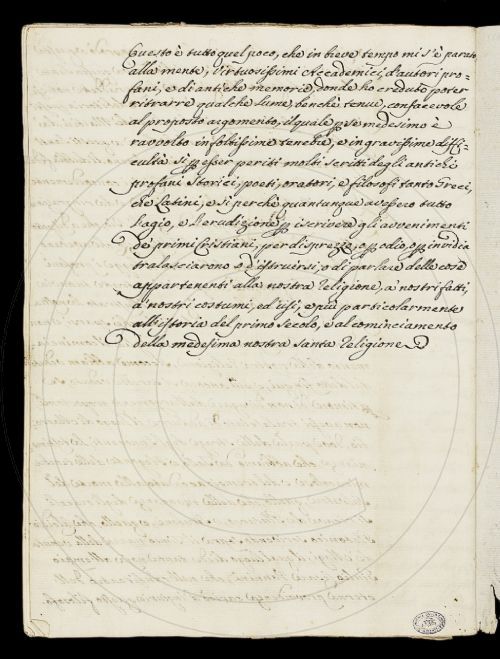 Questo è tutto quel poco, che in breve tempo mi s'è parato
alla mente, Virtuosissimi Accademici, d'autori pro-
fani, e di antiche memorie, donde ho creduto poter
ritrarre qualche lume, benchè tenue, confacevole
al proposto argomento, il quale p se medesimo è
ravvolto in foltissime tenebre, e in gravissime diffi-
cultà sì p esser periti molti scritti degli antichi
profani Storici, poeti, oratori, e filosofi tanto Greci,
che Latini, e sì perchè quantunque avessero tutto
l'agio, e l'erudizione p iscrivere gli avvenimenti
de' primi Cristiani, per disprezzo, o p odio, o p invidia
tralasciarono o d'istruirsi, o di parlare delle cose
appartenenti alla nostra Religione, a' nostri fatti,
a' nostri costumi, ed usi, e più particolarmente
all'istoria del primo Secolo, e al cominciamento
della medesima nostra santa Religione